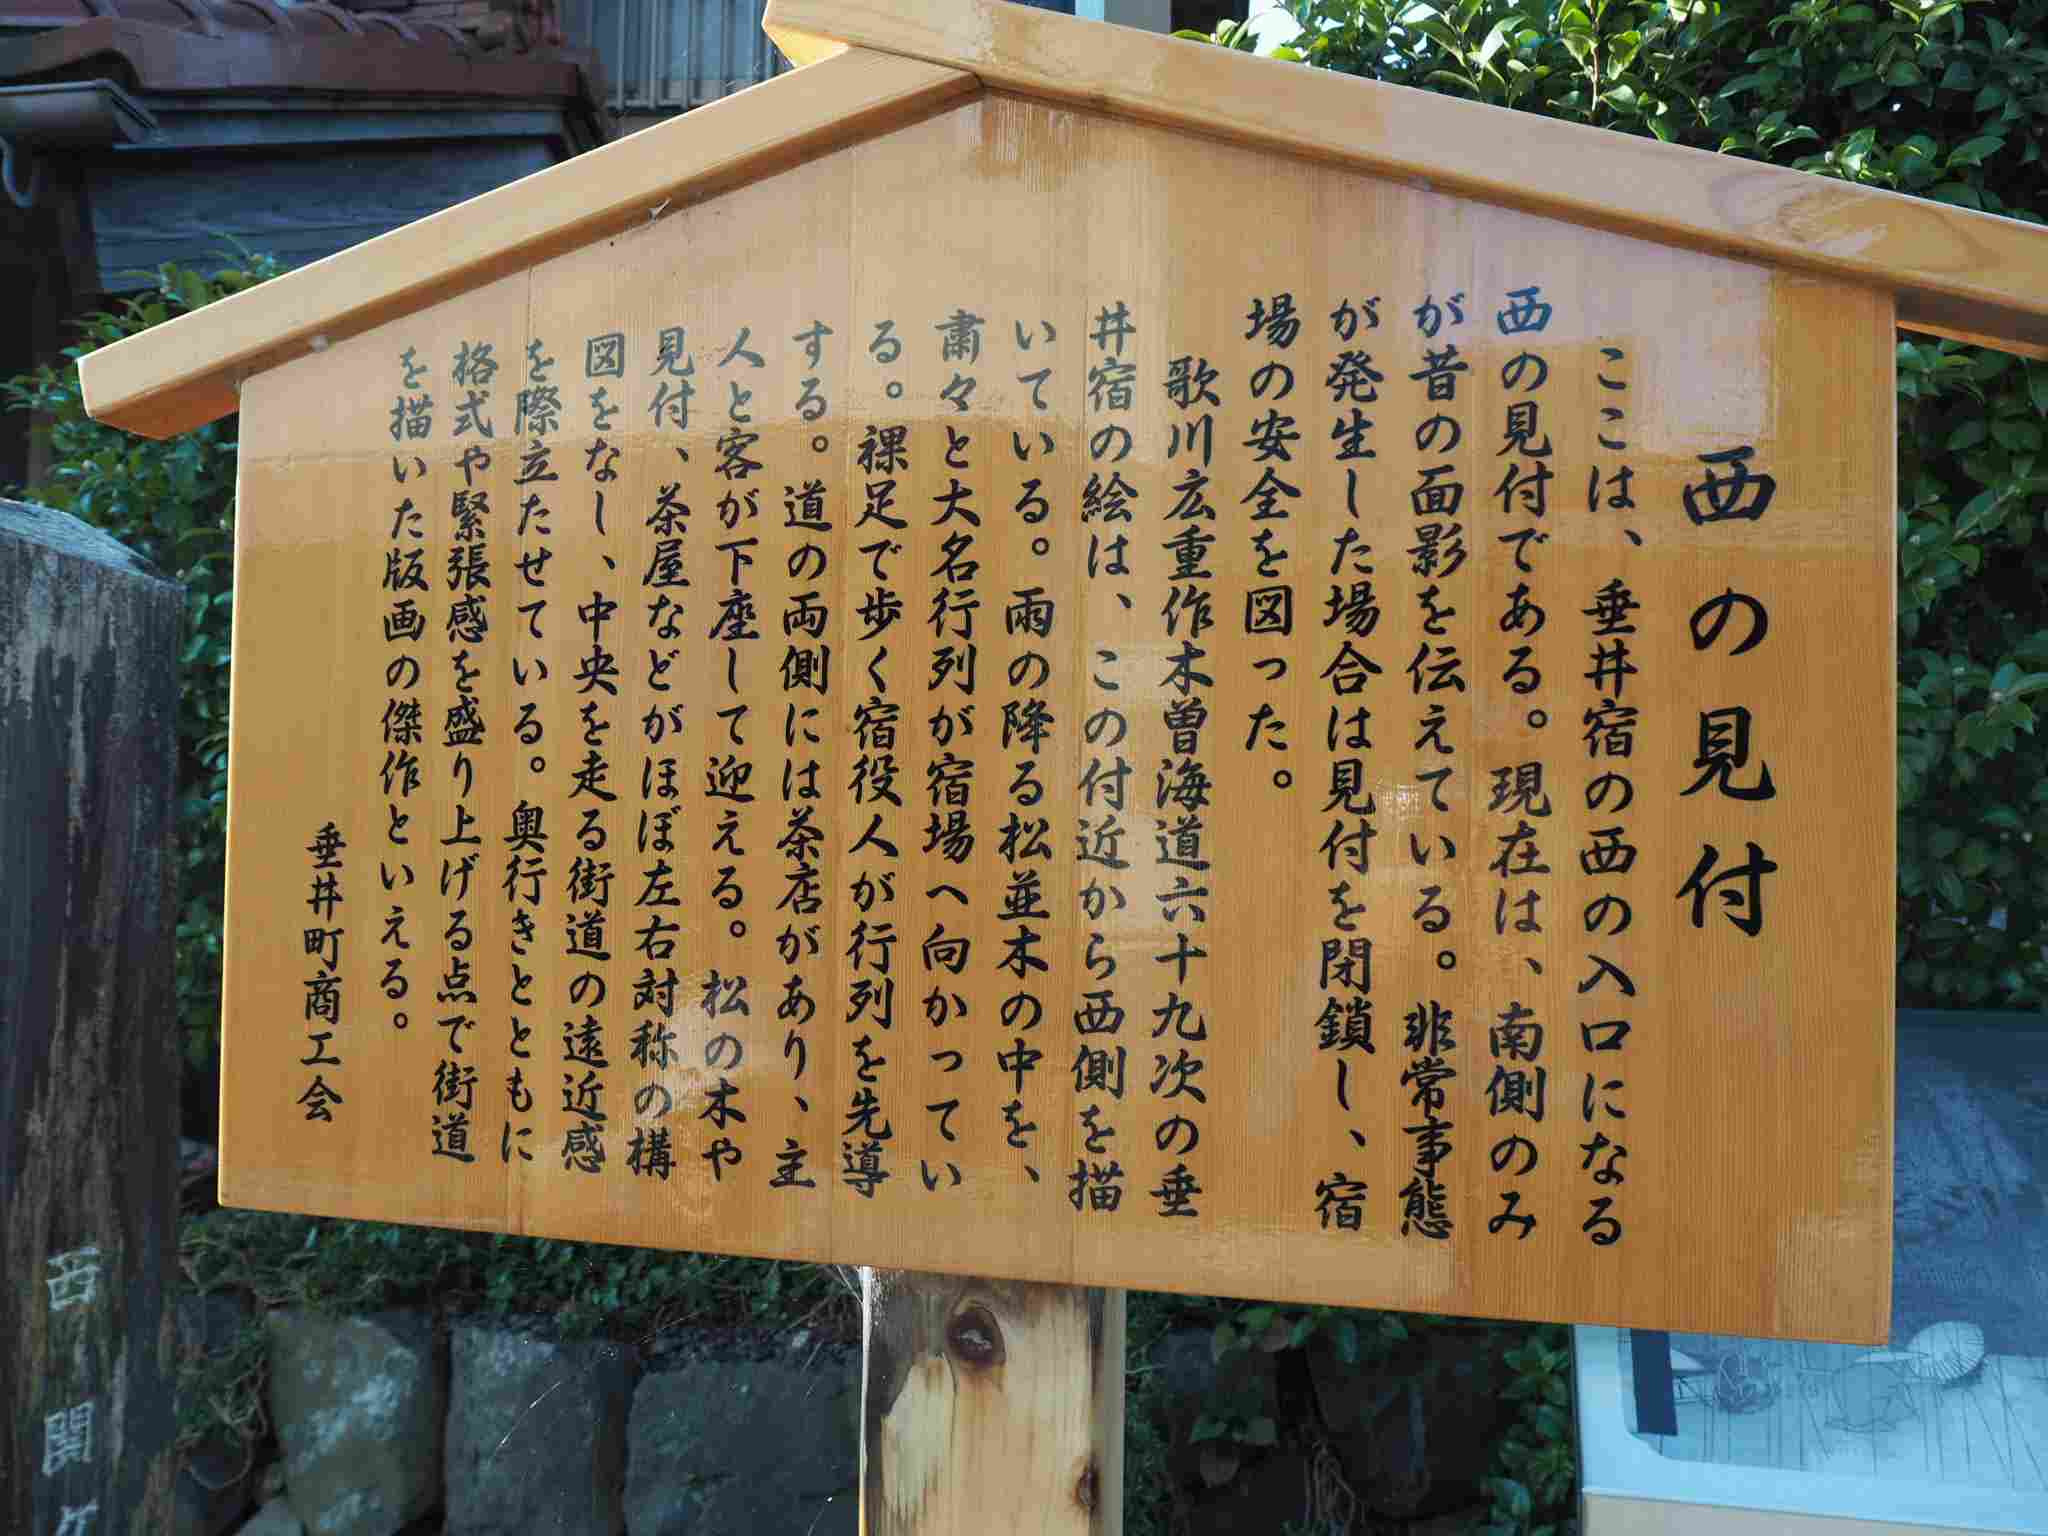 西の見付
ここは、垂井宿の西の入口になる
西の見付である。現在は、南側のみ
が昔の面影を伝えている。非常事態
が発生した場合は見付を閉鎖し、宿
場の安全を図った。
歌川広重作木曽海道六十九次の垂
井宿の絵は、この付近から西側を描
いている。雨の降る松並木の中を、
粛々と大名行列が宿場へ向かってい
る。裸足で歩く宿役人が行列を先導
する。道の両側には茶店があり、主
人と客が下座して迎える。松の木や
見付、茶屋などがほぼ左右対称の構
図をなし、中央を走る街道の遠近感
を際立たせている。奥行きとともに
格式や緊張感を盛り上げる点で街道
を描いた版画の傑作といえる。
垂井町商工会
西関ケ